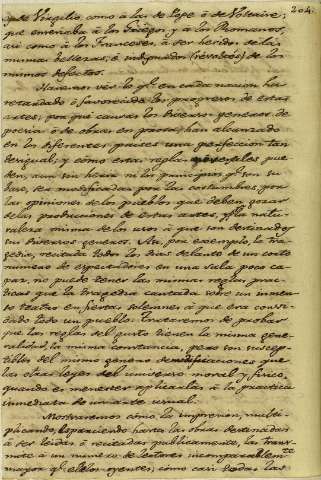 204.
que enseñaba à los Griegos, y à los Romanos,
así como à los Franceses, à ser heridos de las
mismas bellezas, ó indignados (revelles) de los
mismos defectos.
Haremos ver lo q.e en cada nacion ha
retardado ó favorecido los progresos de estas
artes; por qué causas los diversos generos de
poesia ó de obras en prosa, han alcanzado
en los diferentes paises una perfeccion tan
desigual; y cómo estas reglas universales pue-
den, aun sin herir ni los principios q.e son su
base, ser modificadas por las costumbres, por
las opiniones de los pueblos que deben gozar
de las producciones de estas artes, y p.r la natu-
raleza misma de los usos à que son destinados
sus diversos generos. Asi, por exemplo, la tra-
gedia, recitada todos los dias delante de un corto
numero de espectadores en una sala poco ca-
paz, no puede tener las mismas reglas prac-
ticas que la tragedia cantada sobre un inmen-
so teatro en fiestas solemnes à que era convi-
dado todo un pueblo. Trataremos de probar
que las reglas del gusto tienen la misma gene-
ralidad, la misma constancia, pero son suscep-
tibles del mismo genero de modificaciones que
las otras leyes del universo moral y fisico,
quando es menester aplicarlas à la práctica
inmediata de un arte usual.
Mostraremos cómo la impresion, multi-
plicando, esparciendo hasta las obras destinadas
à ser leidas ó recitadas publicamente, las trans-
mite à un numero de lectores incomparablem.te
mayor q.e el de los oyentes; cómo casi todas las